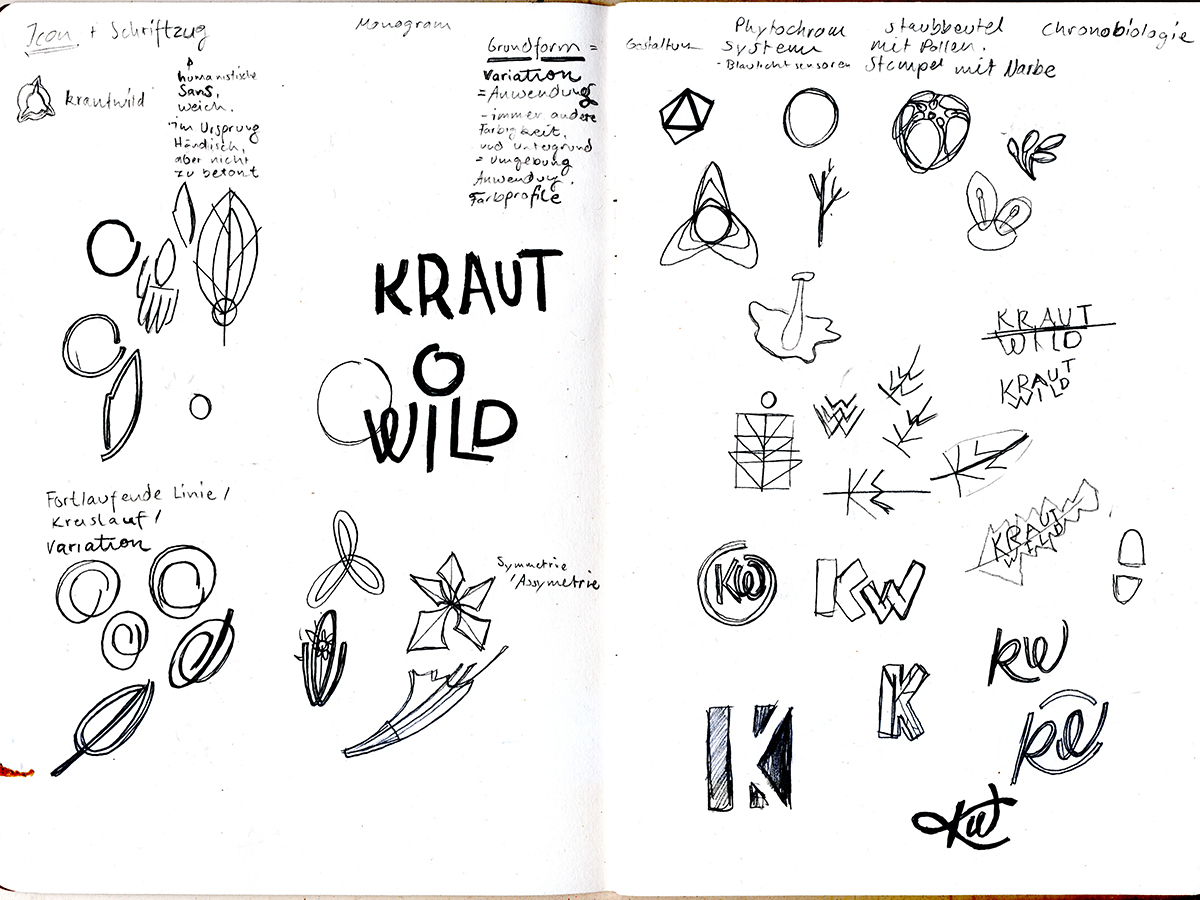 Icon + Schriftzug
krautwild
humanistische
Sans,
weich.
im Ursprung
Händisch,
aber nicht
zu betont
Monogram
Grundform =
Variation
= Anwendung
- immer andere
Farbigkeit,
und Untergrund
= Umgebung
Anwendung.
Farbprofile
KRAUT
WILD
Fortlaufende Linie /
Kreislauf /
Variation
Symmetrie
/Assymetrie
Phytochrom
System
- Blaulichtsensoren
Staubbeutel
mit Pollen.
Stempel mit Narbe
Chronobiologie
KRAUT
WILD
KRAUT
WILD
W
K
KRAUT
WILD
KW
KW
kw
K
K
kw
kw